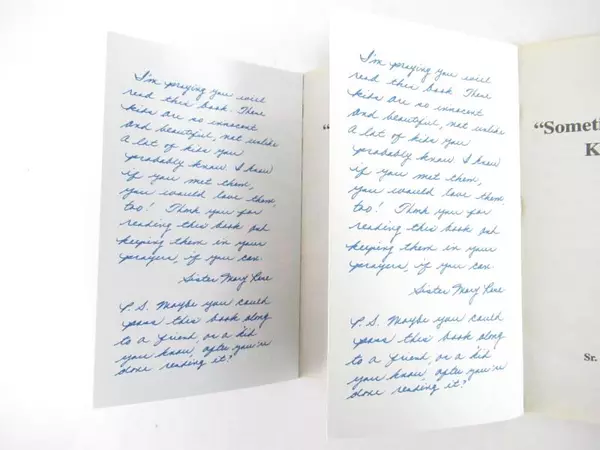 I'm praying you will
read this book. These
kids are so innocent
and beautiful, not unlike
a lot of kids you
probably know. I know
if you met them,
you would love them,
too! Thank you for
reading this book and
keeping them in your
prayers, if you can.
Sister Mary
P.S. Maybe you could
pass this book along
to a friend, or a kid
you know, after you're
done reading it?
"
I'm praying you will
read this book. These
kids are so innocent
and beautiful, not unlike
a lot of kids you
probably know. I know
if you met them,
you would love them,
too! Thank you for
reading this book and
keeping them in your
prayers, if you can.
Sister Mary
P.S. Maybe you could
pass this book along
to a friend, or a kid
you know, after you're
done reading it?
"Someti
K
Sr.